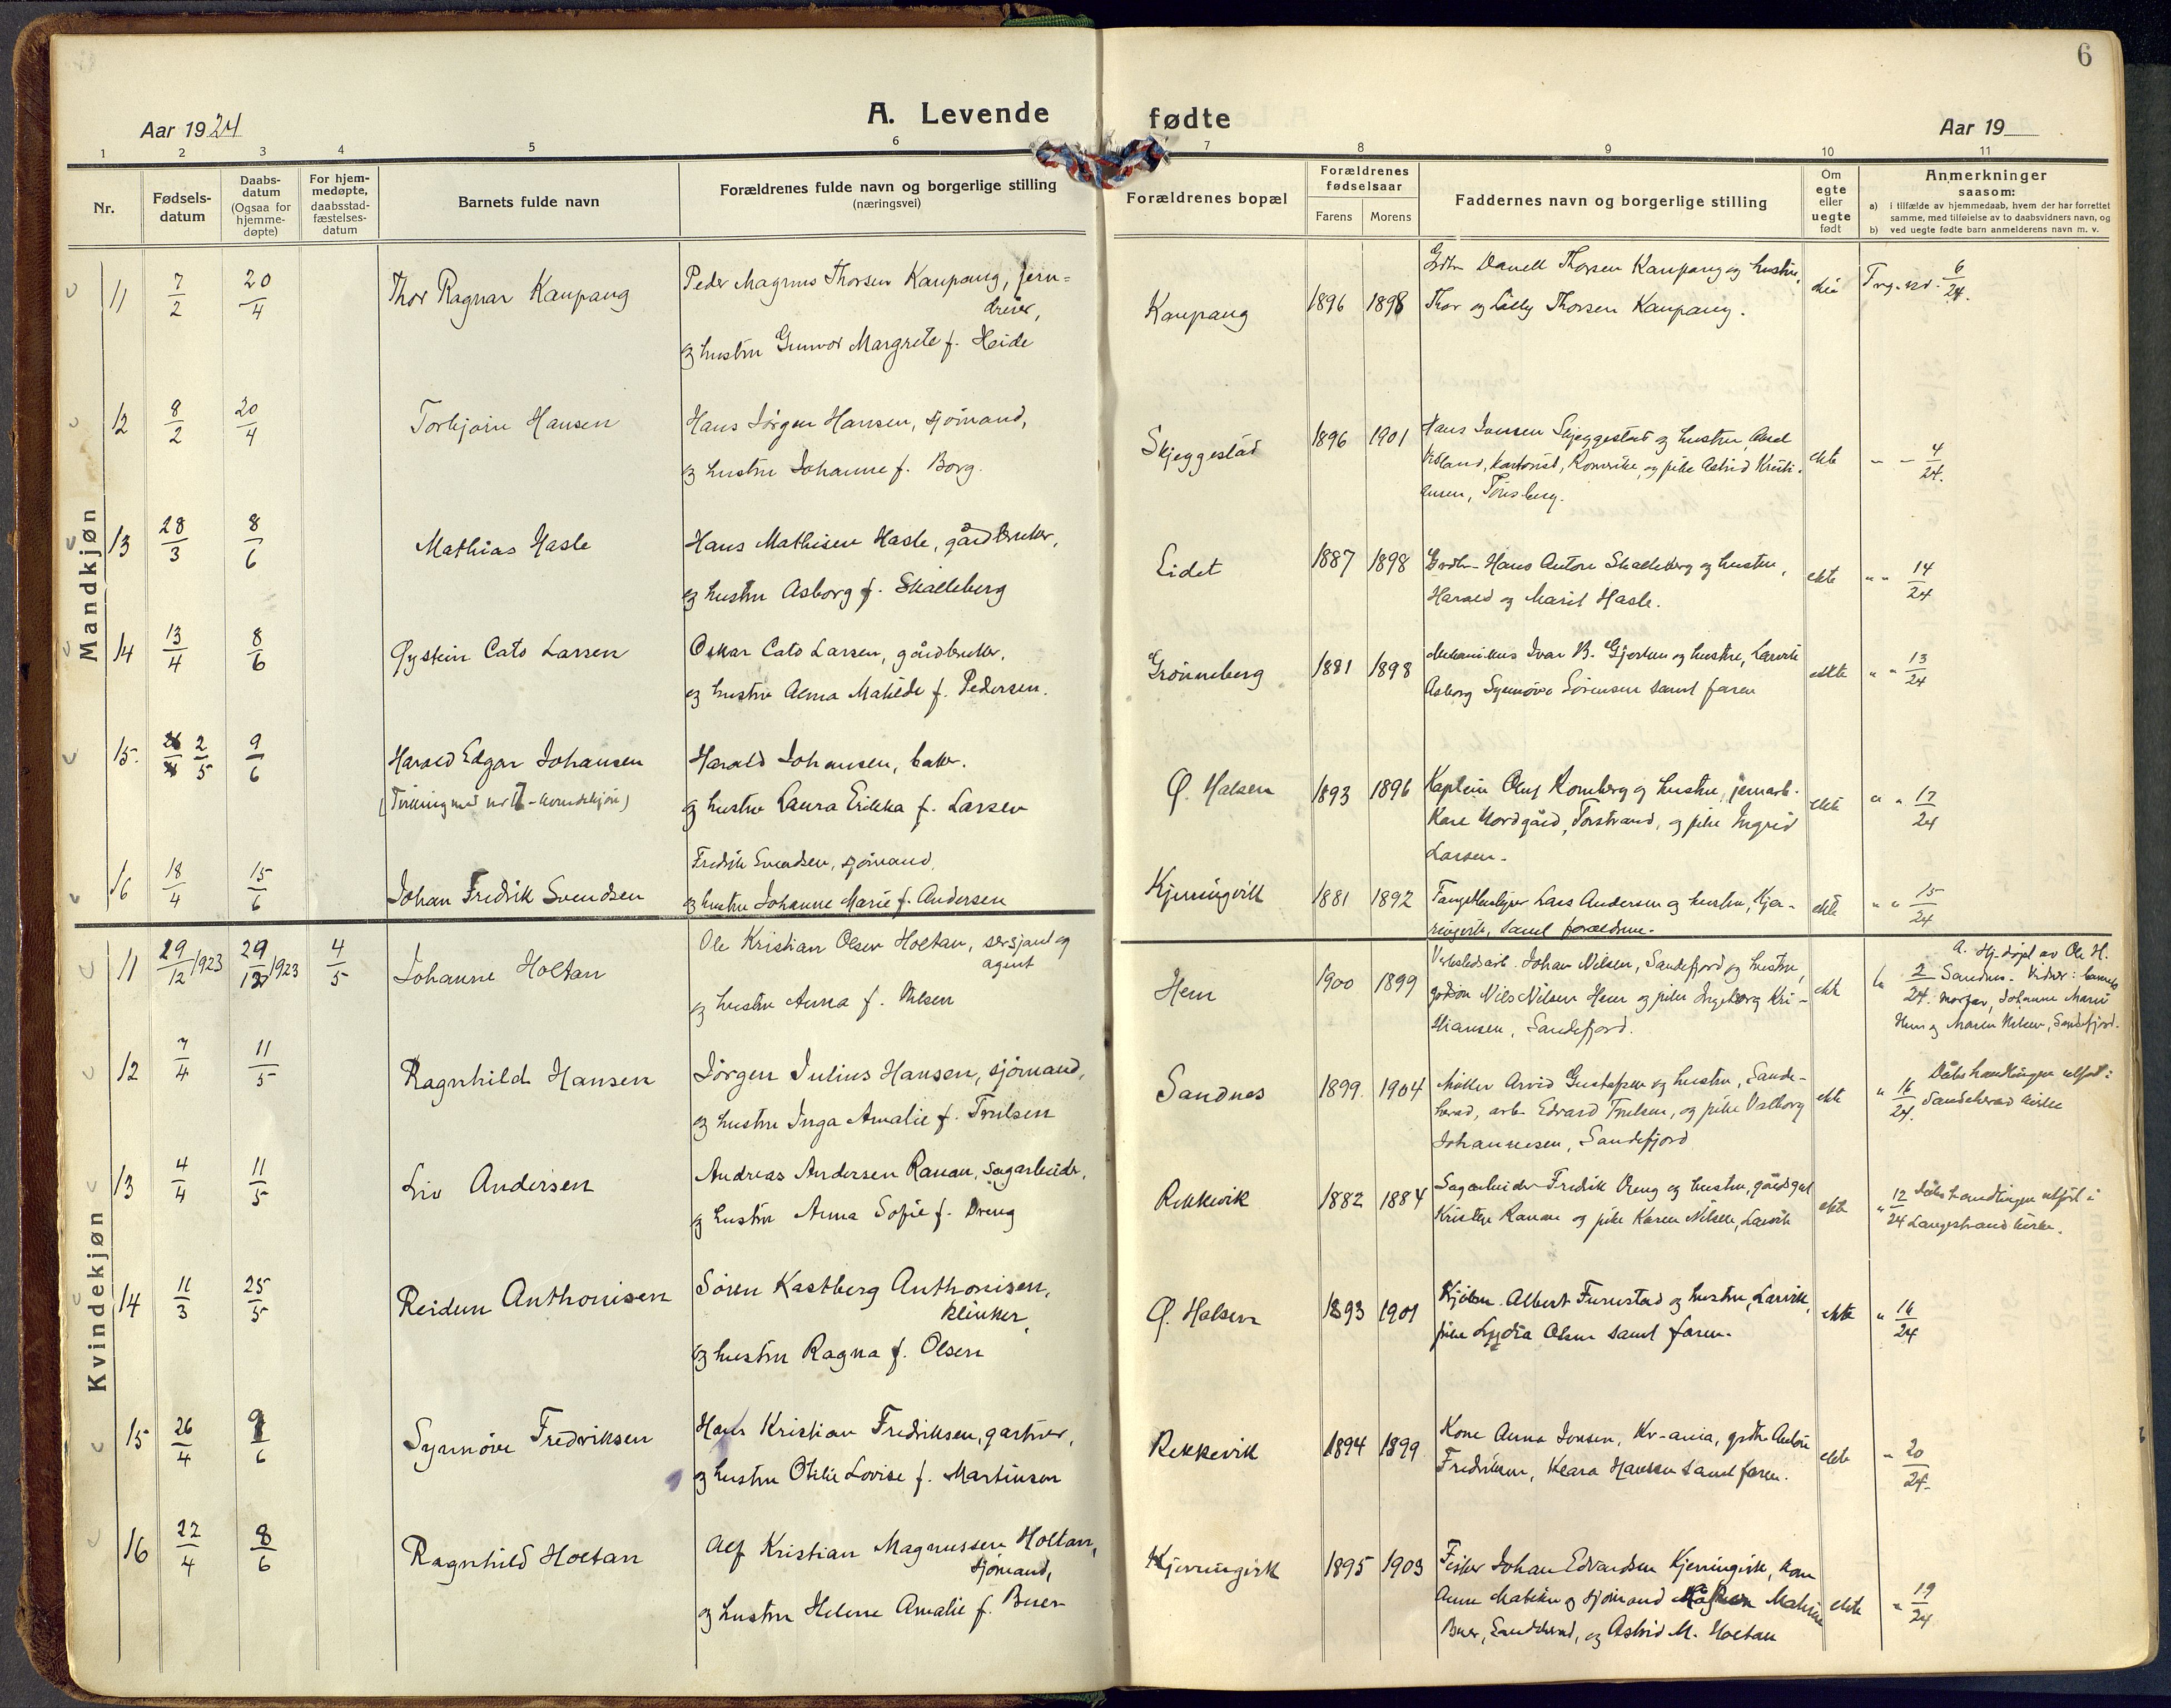 6
A. Levende fødte
Aar 1924
Aar 19
1 2 3 4 5 6 7 8 9 10 11
Nr.
Fødsels-
datum
Daabs-
datum
(Ogsaa for
hjemme-
døpte)
For hjem-
medøpte,
daabsstad-
fæstelses-
datum
Barnets fulde navn
Forældrenes fulde navn og borgerlige stilling
(næringsvei)
Forældrenes bopæl
Forældrenes
fødselsaar
Farens Morens
Faddernes navn og borgerlige stilling
Om
egte
eller
uegte
født
Anmerkninger
saasom:
a) i tilfælde av hjemmedaab, hvem der har forrettet
samme, med tilføielse av to daabsvidners navn, og
b) ved uegte fødte barn anmelderens navn m. v.
Mandkjøn
11 7/2 20/4 Thor Ragnar Kaupang
Peder Magnus Thorsen Kaupang, jern=
dreier,
og hustru Gunvor Margrete f. Heide
Kaupang 1896 1898
Danell Thorsen Kaupang og hustru,
Thor og Lilly Thorsen Kaupang.
6/24.
12 8/2 20/4 Torbjørn Hansen
Hans Jørgen Hansen, sjømand,
og hustru Johanne f. Borg.
Skjeggestad 1896 1901
Hans Iversen Skjeggestad og hustru,
og pike Astrid Kristi-
ansen, Tønsberg.
ekte - - 4/24.
13 28/3 8/6 Mathias Hasle
Hans Mathisen Hasle, gårdbruker,
og hustru Asborg f. Skalleberg
Eidet 1887 1898
Grdbr. Hans Anton Skalleberg og hustru,
Harald og Marit Hasle.
ekte " " 14/24
14 13/4 8/6 Øystein Cato Larsen
Oskar Cato Larsen, gårdbruker,
og hustru Alma Matilde f. Pedersen.
Grønneberg 1881 1898
Mekanikus Ivar B. Gjertsen og hustru, Larvik
Asborg Synnøve Sørensen samt faren
ekte " " 13/24
15. 2/5 9/6 Harald Edgar Johansen
(Tvilling med nr 17 - kvindekjøn)
Harald Johansen, baker.
og hustru Laura Erikka f. Larsen
Ø. Halsen 1893 1896
Kaptein Oluf Romberg og hustru, jernarb.
Kare Nordgård, Torstrand, og pike Ingrid
Larsen.
ekte " " 17/24
16 18/4 15/6 Johan Fredrik Svendsen
Fredrik Svendsen, sjømand,
og hustru Johanne Marie f. Andersen
Kjerringvik 1881 1892
Lars Andersen og hustru, Kjer-
ringvik, samt forældrene.
ekte " " 15/24
Kvindekjøn
11 29/12 1923 29/12 1923 4/5 Johanne Holtan
Ole Kristian Olsen Holtan, sersjant og
agent
og hustru Anna f. Nilsen
Hem 1900 1899
Verkstedsarb. Johan Nilsen, Sandefjord og hustru,
Nils Nilsen Hem og pike Ingeborg Kri-
stiansen, Sandefjord.
ekte 2/24.
a. Hj. døpt av Ole H.
Sandnes. Vidner: barnets
morfar, Johanne Marie
Hem og Maren Nilsen, Sandefjord.
12 7/4 11/5 Ragnhild Hansen
Jørgen Julius Hansen, sjømand,
og hustru Inga Amalie f. Trulsen
Sandnes 1899. 1904
Møller Arvid Gustafsen og hustru, Sande-
herad, arb. Edvard Trulsen, og pike Valborg
Johannesen, Sandefjord
ekte " 16/24. Dåbshandlingen utført i
Sandeherad kirke
13 4/4 11/5 Liv Andersen
Andreas Andersen Ranau, sagarbeider,
og hustru Anna Sofie f. Øreng
Rekkevik 1882 1884
Sagarbeider Fredrik Øreng og hustru,
Kristen Ranau og pike Karen Nilsen, Larvik
ekte " 12/24 Dåbshandlingen utført i
Langestrand kirke.
14 11/3 25/5 Reidun Anthonisen
Søren Kastberg Anthonisen,
klinker,
og hustru Ragna f. Olsen
Ø. Halsen 1893 1901
Albert Furustad og hustru, Larvik,
pike Lydia Olsen samt faren.
ekte " 16/24
15 26/4 9/6 Synnøve Fredriksen
Hans Kristian Fredriksen, gartner,
og hustru Otilie Lovise f. Martinsen
Rekkevik 1894 1899
Kone Anna Jensen, Kr-ania, Anton
Fredriksen, Klara Hansen samt faren.
ekte " 20/24.
16 22/4 8/6 Ragnhild Holtan
Alf Kristian Magnussen Holtan,
sjømand,
og hustru Helene Amalie f. Buer
Kjerringvik 1895 1903
Fisker Johan Edvardsen Kjerringvik, kone
Anne og sjømand
Buer, Sandeherad, og Astrid M. Holtan
ekte " 19/24